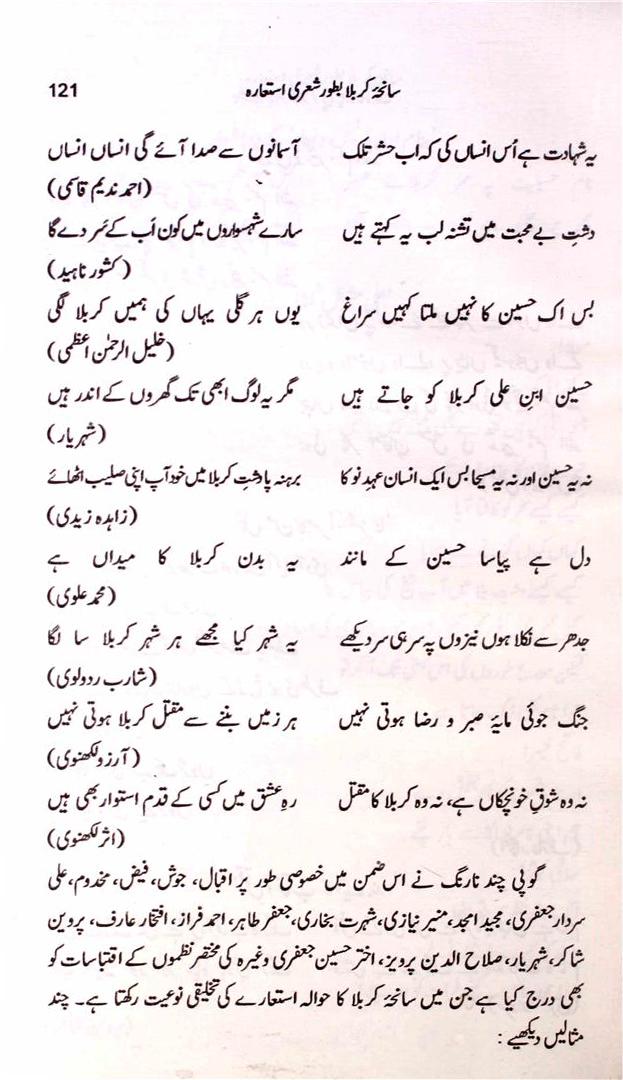 سانحۂ کربلا بطور شعری استعارہ 121
یہ شہادت ہے اُس انساں کی کہ اب حشر تلک آسمانوں سے صدا آئے گی انساں انساں
(احمد ندیم قاسمی)
دشتِ بے محبت میں تشنہ لب یہ کہتے ہیں سارے شہسواروں میں کون اَب کے سَر دے گا
(کشور ناہید)
بس اک حسین کا نہیں ملتا کہیں سراغ یوں ہر گلی یہاں کی ہمیں کربلا لگی
(خلیل الرحمٰن اعظمی)
حسین ابنِ علی کربلا کو جاتے ہیں مگر یہ لوگ ابھی تک گھروں کے اندر ہیں
(شہریار)
نہ یہ حسین اور نہ یہ مسیحا بس ایک انسان عہدِ نو کا برہنہ پا دشتِ کربلا میں خود آپ اپنی صلیب اٹھائے
(زاہدہ زیدی)
دل ہے پیاسا حسین کے مانند یہ بدن کربلا کا میداں ہے
(محمد علوی)
جدھر سے نکلا ہوں نیزوں پہ سر ہی سر دیکھے یہ شہر کیا مجھے ہر شہر کربلا سا لگا
(شارب ردولوی)
جنگ جوئی مایۂ صبر و رضا ہوتی نہیں ہر زمیں بننے سے مقتل کربلا ہوتی نہیں
(آرزو لکھنوی)
نہ وہ شوقِ خونچکاں ہے، نہ وہ کربلا کا مقتل رہِ عشق میں کسی کے قدم استوار بھی ہیں
(اثر لکھنوی)
گوپی چند نارنگ نے اس ضمن میں خصوصی طور پر اقبال، جوش، فیض، مخدوم، علی
سردار جعفری، مجید امجد، منیر نیازی، شہرت بخاری، جعفر طاہر، احمد فراز، افتخار عارف، پروین
شاکر، شہریار، صلاح الدین پرویز، اختر حسین جعفری وغیرہ کی مختصر نظموں کے اقتباسات کو
بھی درج کیا ہے جن میں سانحۂ کربلا کا حوالہ استعارے کی تخلیقی نوعیت رکھتا ہے۔ چند
مثالیں دیکھیے :